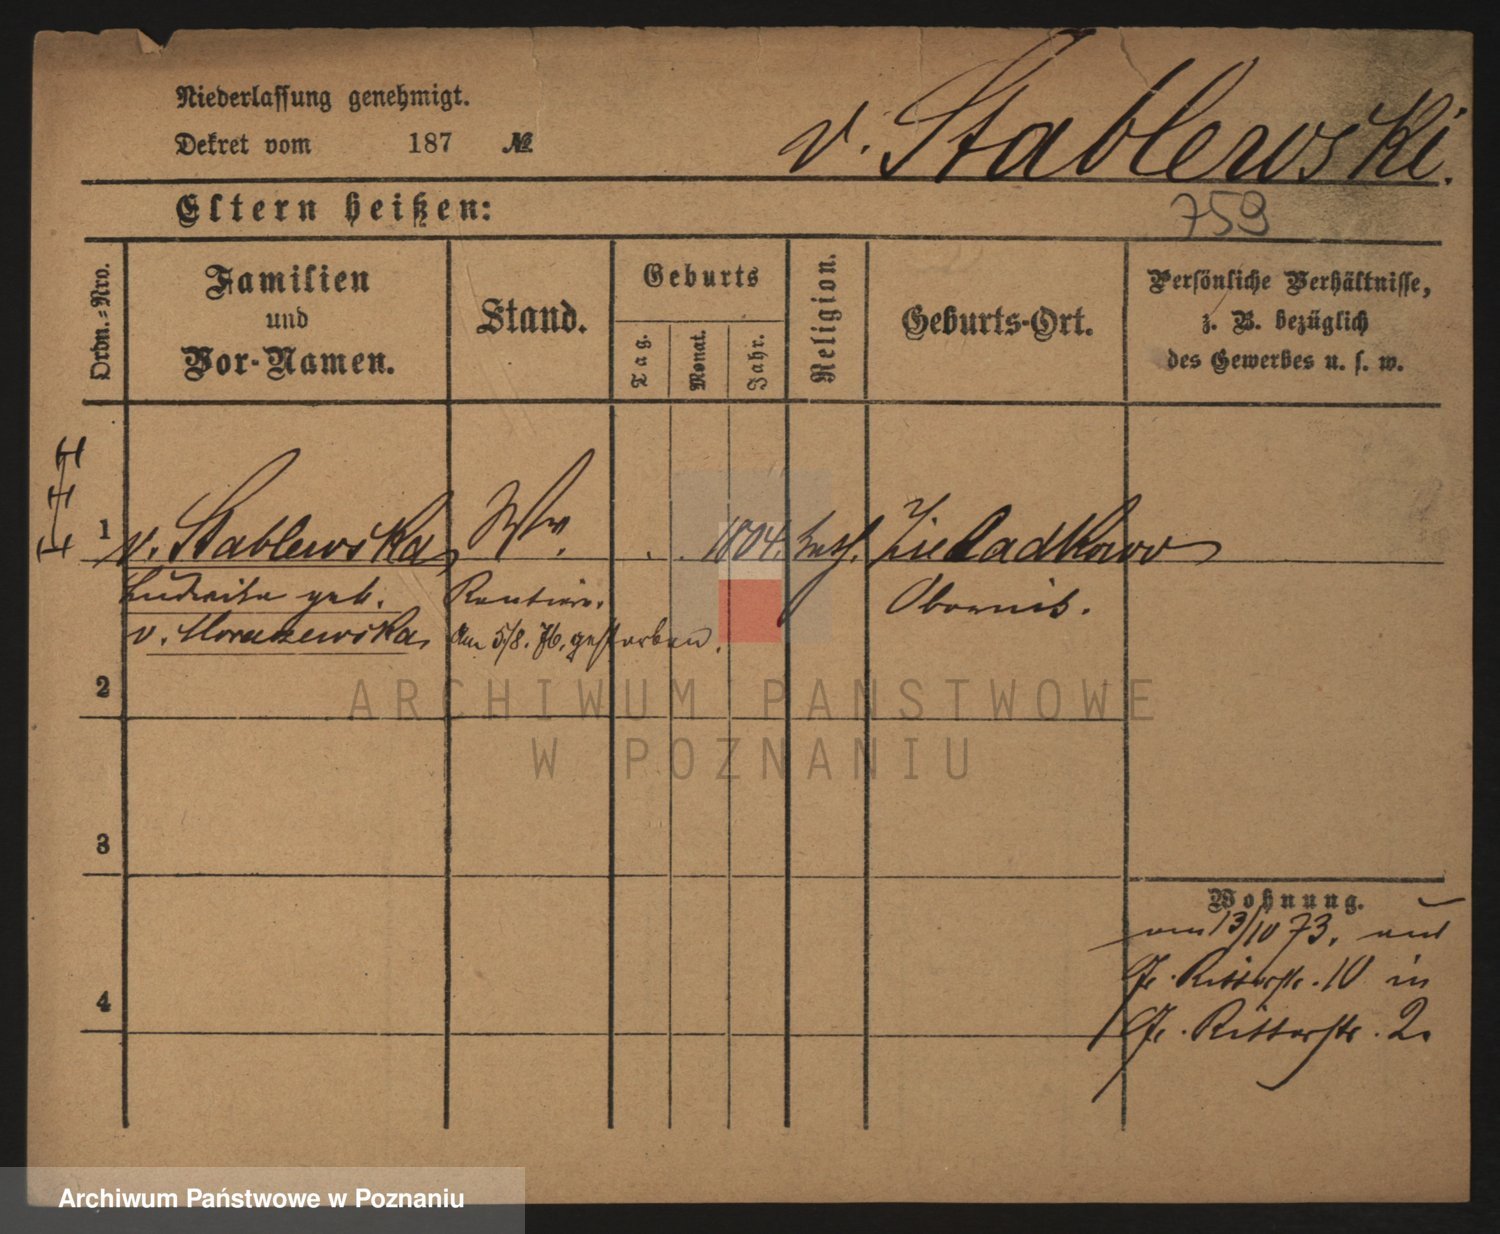 Niederlassung genehmigt.
Dekret vom 187 №
v. Stablewski.
Eltern heißen:
759
Ordn.-Nro.
Familien
und
Vor-Namen.
Stand.
Geburts
Tag.
Monat.
Jahr.
Religion.
Geburts-Ort.
Persönliche Verhältnisse,
z. B. bezüglich
des Gewerbes u. s. w.
1 v. Stablewska, Ww. 1804. kath.
Ludwika geb. Rentiere. Obornik.
am 5/8. 76. gestorben.
2
ARCHIWUM PAŃSTWOWE
W POZNANIU
3
Wohnung.
13/10 73. aus
Gr. Ritterstr. 10 in
4
Gr. Ritterstr. 2.
Archiwum Państwowe w Poznaniu